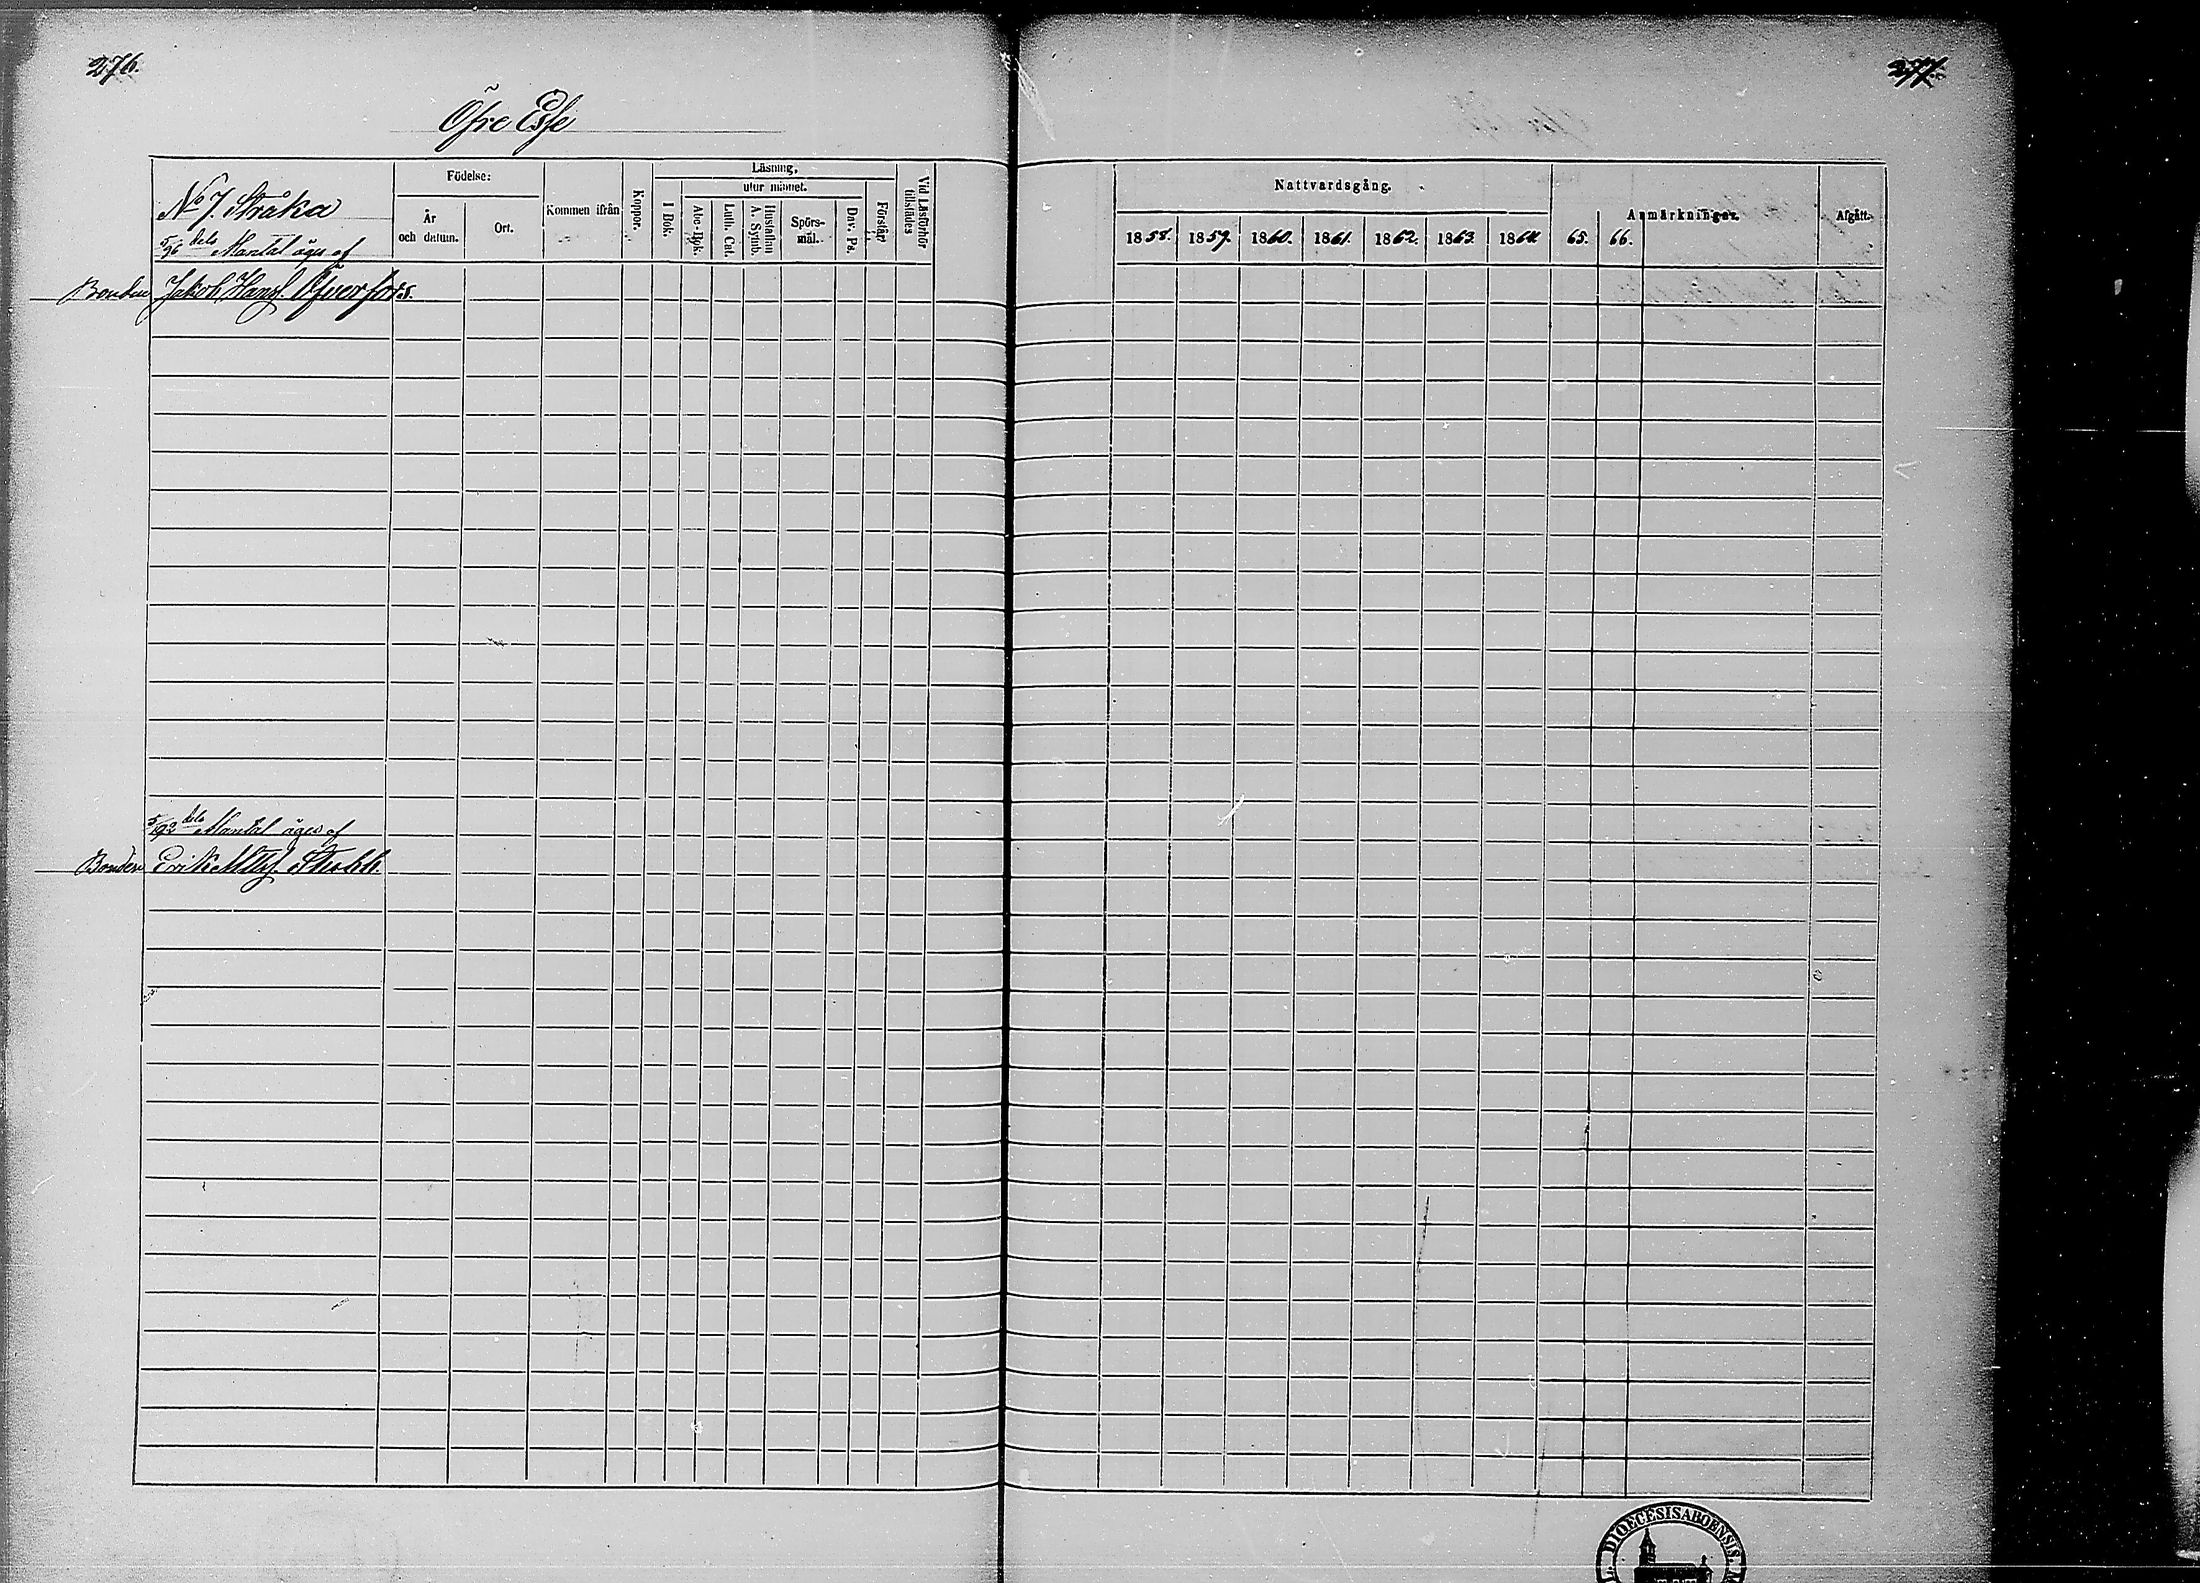 276.
277.
Öfre Esse
No 7. Stråka
5/96 dels Mantal äges af
Bonden Jakob Hansf. Öfverfors.
Födelse:
År
och datum.
Ort.
Kommen ifrån
Koppor.
Läsning,
I Bok.
utur minnet.
Abc-Bok.
Luth. Cat.
Hustaflan
A. Symb.
Spörs-
mål.
Dav. Ps.
Förstår!
Vid Läsförhör
tillstädes
Nattvardsgång.
1858. 1859. 1860. 1861. 1862. 1863. 1864 65. 66.
Anmärkningar.
Afgått.
5/192 dels Mantal äges af
Bonden Erik Mttsf.
DIOECESIS ABOENSIS.